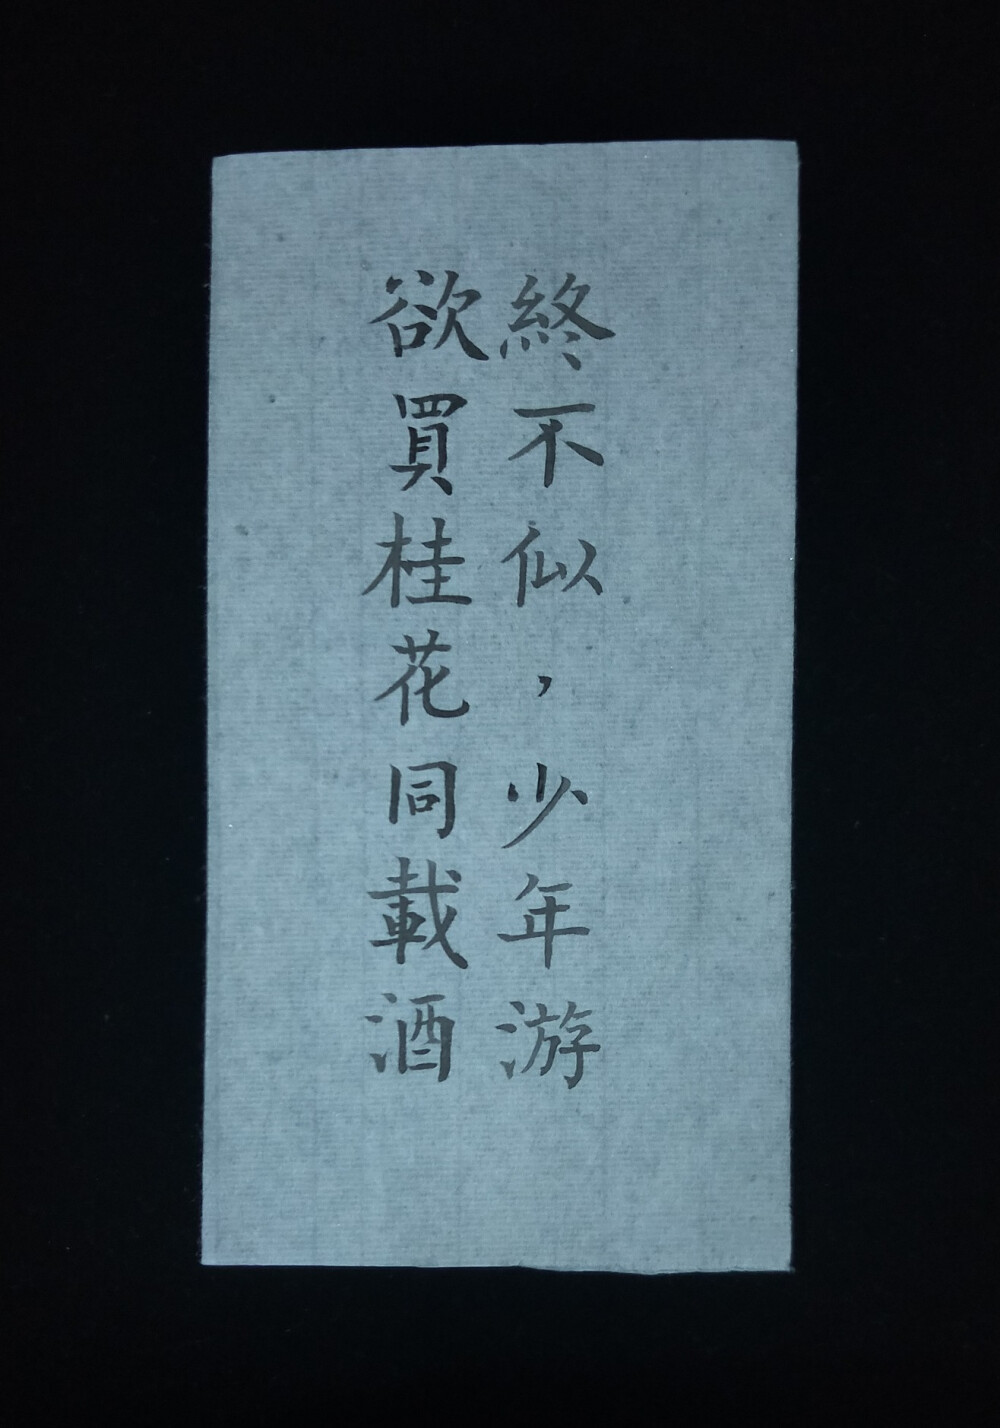 欲買桂花同載酒
終不似，少年游